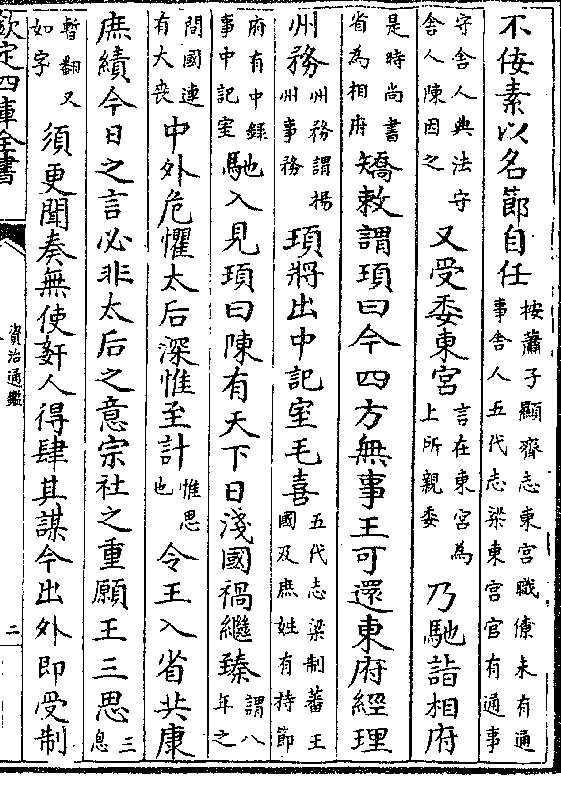 不佞素以名節自任按蕭子顯齊志東宮職僚未有通事舍人五代志梁東宮官有通事
守舍人典法守舍人陳因之又受委東宮言在東宮為上所親委乃馳詣相府
是時尚書省為相府矯敕謂頊曰今四方無事王可還東府經理
州務州務謂揚州事務頊將出中記室毛喜五代志梁制蕃王國及庶姓有持節
府有中錄事中記室馳入見頊曰陳有天下日淺國禍繼臻謂八年之
間國連有大喪中外危懼太后深惟至計惟思也令王入省共康
庶績今日之言必非太后之意宗社之重願王三思三息
暫翻又如字須更聞奏無使奸人得肆其謀今出外即受制
欽定四庫全書
資治通鑑
二